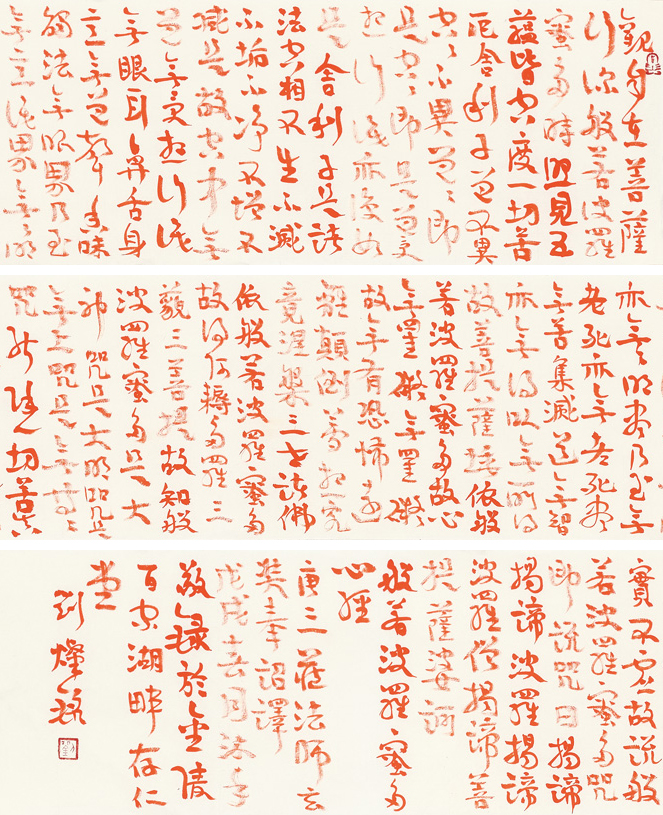 觀自在菩薩
行深般若波羅
蜜多時照見五
蘊皆空度一切苦
厄舍利子色不異
空空不異色色即
是空空即是色受
想行識亦復如
是舍利子是諸
法空相不生不滅
不垢不淨不增不
減是故空中無
色無受想行識
無眼耳鼻舌身
意無色聲香味
觸法無眼界乃至
無意識界無無明
亦無無明盡乃至無
老死亦無老死盡
無苦集滅道無智
亦無得以無所得
故菩提薩埵依般
若波羅蜜多故心
無罣礙無罣礙
故無有恐怖遠
離顛倒夢想究
竟涅槃三世諸佛
依般若波羅蜜多
故得阿耨多羅三
藐三菩提故知般
若波羅蜜多是大
神咒是大明咒是
無上咒是無等等
咒能除一切苦真
實不虛故說般
若波羅蜜多咒
即說咒曰揭諦
揭諦波羅揭諦
波羅僧揭諦菩
提薩婆訶
般若波羅蜜多
心經
唐三藏法師玄
奘奉詔譯
戊戌春月沐手
敬錄於金陵
百家湖畔存仁
堂
劉燦銘